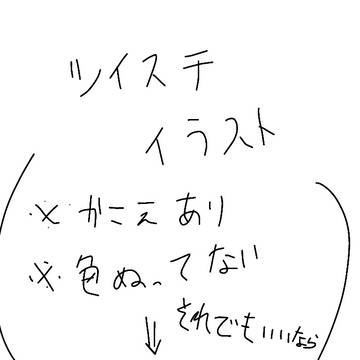 ツイステ
イラスト
※かこえあり
※色ぬってない
それでもいいなら